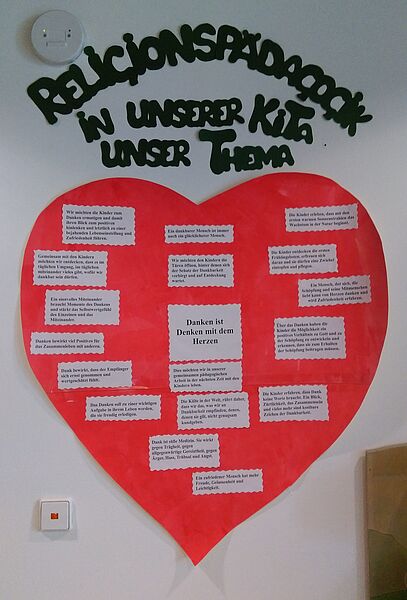 RELIGIONSPÄDAGOGIK
in UNSERER KiTa
UNSER THEMA
Wir möchten die Kinder zum
Danken ermutigen und damit
ihren Blick zum positiven
hinlenken und letztlich zu einer
bejahenden Lebenseinstellung und
Zufriedenheit führen.
Ein dankbarer Mensch ist immer
auch ein glücklicherer Mensch.
Die Kinder erleben, dass mit den
ersten warmen Sonnenstrahlen das
Wachstum in der Natur beginnt.
Gemeinsam mit den Kindern
möchten wir entdecken, dass es im
täglichen Umgang, im täglichen
miteinander vieles gibt, wofür wir
dankbar sein dürfen.
Wir möchten den Kindern die
Türen öffnen, hinter denen sich
der Schatz der Dankbarkeit
verbirgt und auf Entdeckung
wartet.
Die Kinder entdecken die ersten
Frühlingsboten, erfreuen sich
daran und sie dürfen eine Zwiebel
eintopfen und pflegen.
Ein Mensch, der sich, die
Schöpfung und seine Mitmenschen
liebt kann von Herzen danken und
wird Zufriedenheit erfahren.
Ein sinnvolles Miteinander
braucht Momente des Dankens
und stärkt das Selbstwertgefühl
des Einzelnen und das
Miteinander.
Danken ist
Denken mit dem
Herzen
Über das Danken haben die
Kinder die Möglichkeit ein
positives Verhältnis zu Gott und zu
der Schöpfung zu entwickeln und
erkennen, dass sie zum Erhalten
der Schöpfung beitragen müssen.
Danken bewirkt viel Positives für
das Zusammenleben mit anderen.
Dank bewirkt, dass der Empfänger
sich ernst genommen und
wertgeschätzt fühlt.
Das möchten wir in unserer
gemeinsamen pädagogischen
Arbeit in der nächsten Zeit mit den
Kindern leben.
Das Danken soll zu einer wichtigen
Aufgabe in ihrem Leben werden,
die sie freudig erledigen.
Die Kälte in der Welt, rührt daher,
dass wir das, was wir an
Dankbarkeit empfinden, denen,
denen sie gilt, nicht genugsam
kundgeben.
Die Kinder erfahren, dass Dank
keine Worte braucht. Ein Blick,
Zärtlichkeit, das Zusammensein
und vieles mehr sind kostbare
Zeichen der Dankbarkeit.
Dank ist süße Medizin. Sie wirkt
gegen Trägheit, gegen
allgegenwärtige Gereiztheit, gegen
Ärger, Hass, Trübsal und Angst.
Ein zufriedener Mensch hat mehr
Freude, Gelassenheit und
Leichtigkeit.